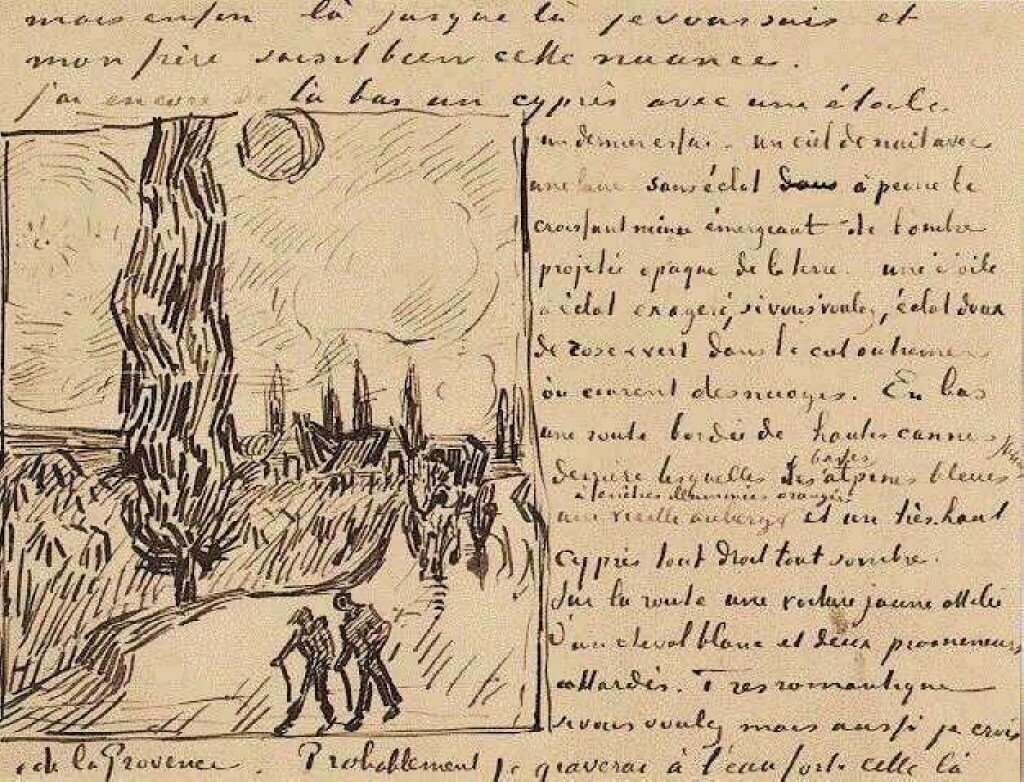 mais enfin là jusque là je vous suis et
mon frère saisit bien cette nuance.
j'ai encore de là bas un cyprès avec une étoile.
un dernier essai – un ciel de nuit avec
une lune sans éclat dans à peine le
croissant mince émergeant de l'ombre
projetée opaque de la terre. une étoile
à éclat exagéré, si vous voulez, éclat doux
de rose & vert dans le ciel outremer
où courent des nuages. En bas
une route bordée de hautes cannes jaunes
derrière lesquelles les basses alpines bleues
à fenêtres illuminées orangée
une vieille auberge et un très haut
cyprès tout droit tout sombre.
Sur la route une voiture jaune attelée
d'un cheval blanc et deux promeneurs
attardés. Très romantique
si vous voulez mais aussi je crois
de la Provence. Probablement je graverai à l'eau forte celle là